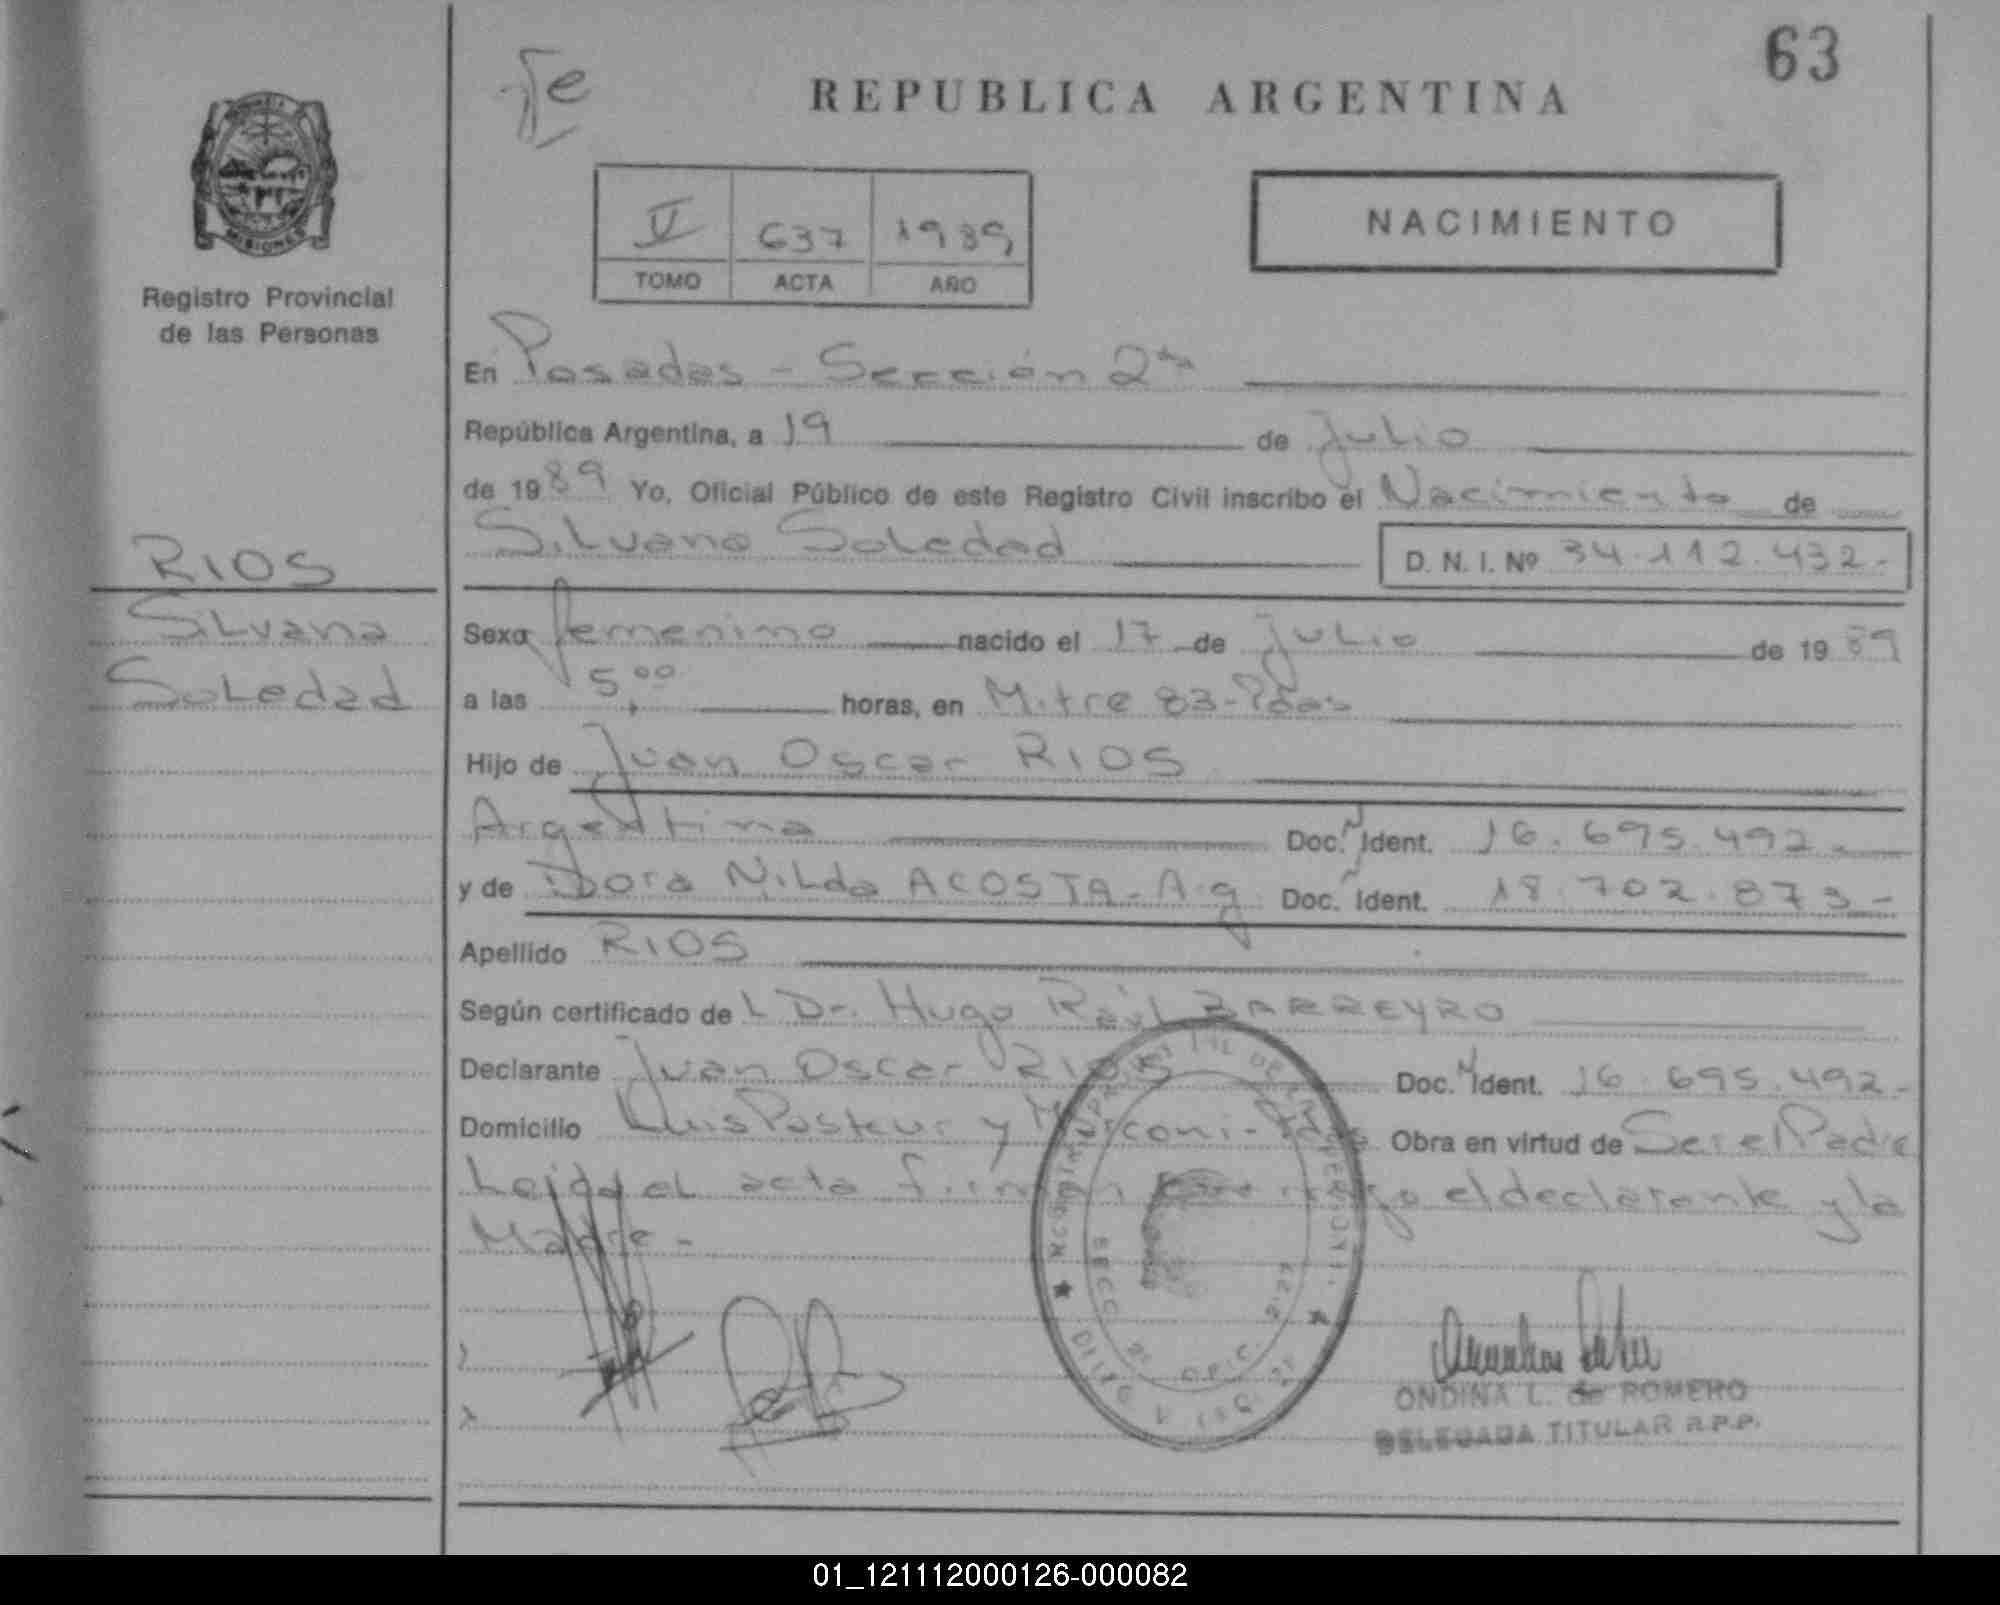 63
REPUBLICA ARGENTINA
MISIONES
Registro Provincial
de las Personas
V 637 1989
TOMO ACTA AÑO
NACIMIENTO
En Posadas - Sección 2da
República Argentina, a 19 de Julio
de 1989 Yo, Oficial Público de este Registro Civil inscribo el Nacimiento de
Silvana Soledad D. N. I. Nº 34.112.432.-
RIOS
Silvana
Soledad
Sexo femenino nacido el 17 de Julio de 1989
a las 5,00 horas, en Mitre 83-Pdas
Hijo de Juan Oscar RIOS
Argentina Doc. N Ident. 16.695.492.-
y de Dora Nilda ACOSTA - Arg Doc. N Ident. 18.702.873-
Apellido RIOS
Según certificado de L Dr. Hugo Raúl BARREYRO
Declarante Juan Oscar RIOS Doc. N Ident. 16.695.492-
Domicilio Luis Pasteur y Marconi - Pdas Obra en virtud de Ser el Padre
Leida el acta firman conmigo el declarante y la
Madre -
SECC. 2ª
ONDINA L. de ROMERO
DELEGADA TITULAR R.P.P.
01_121112000126-000082